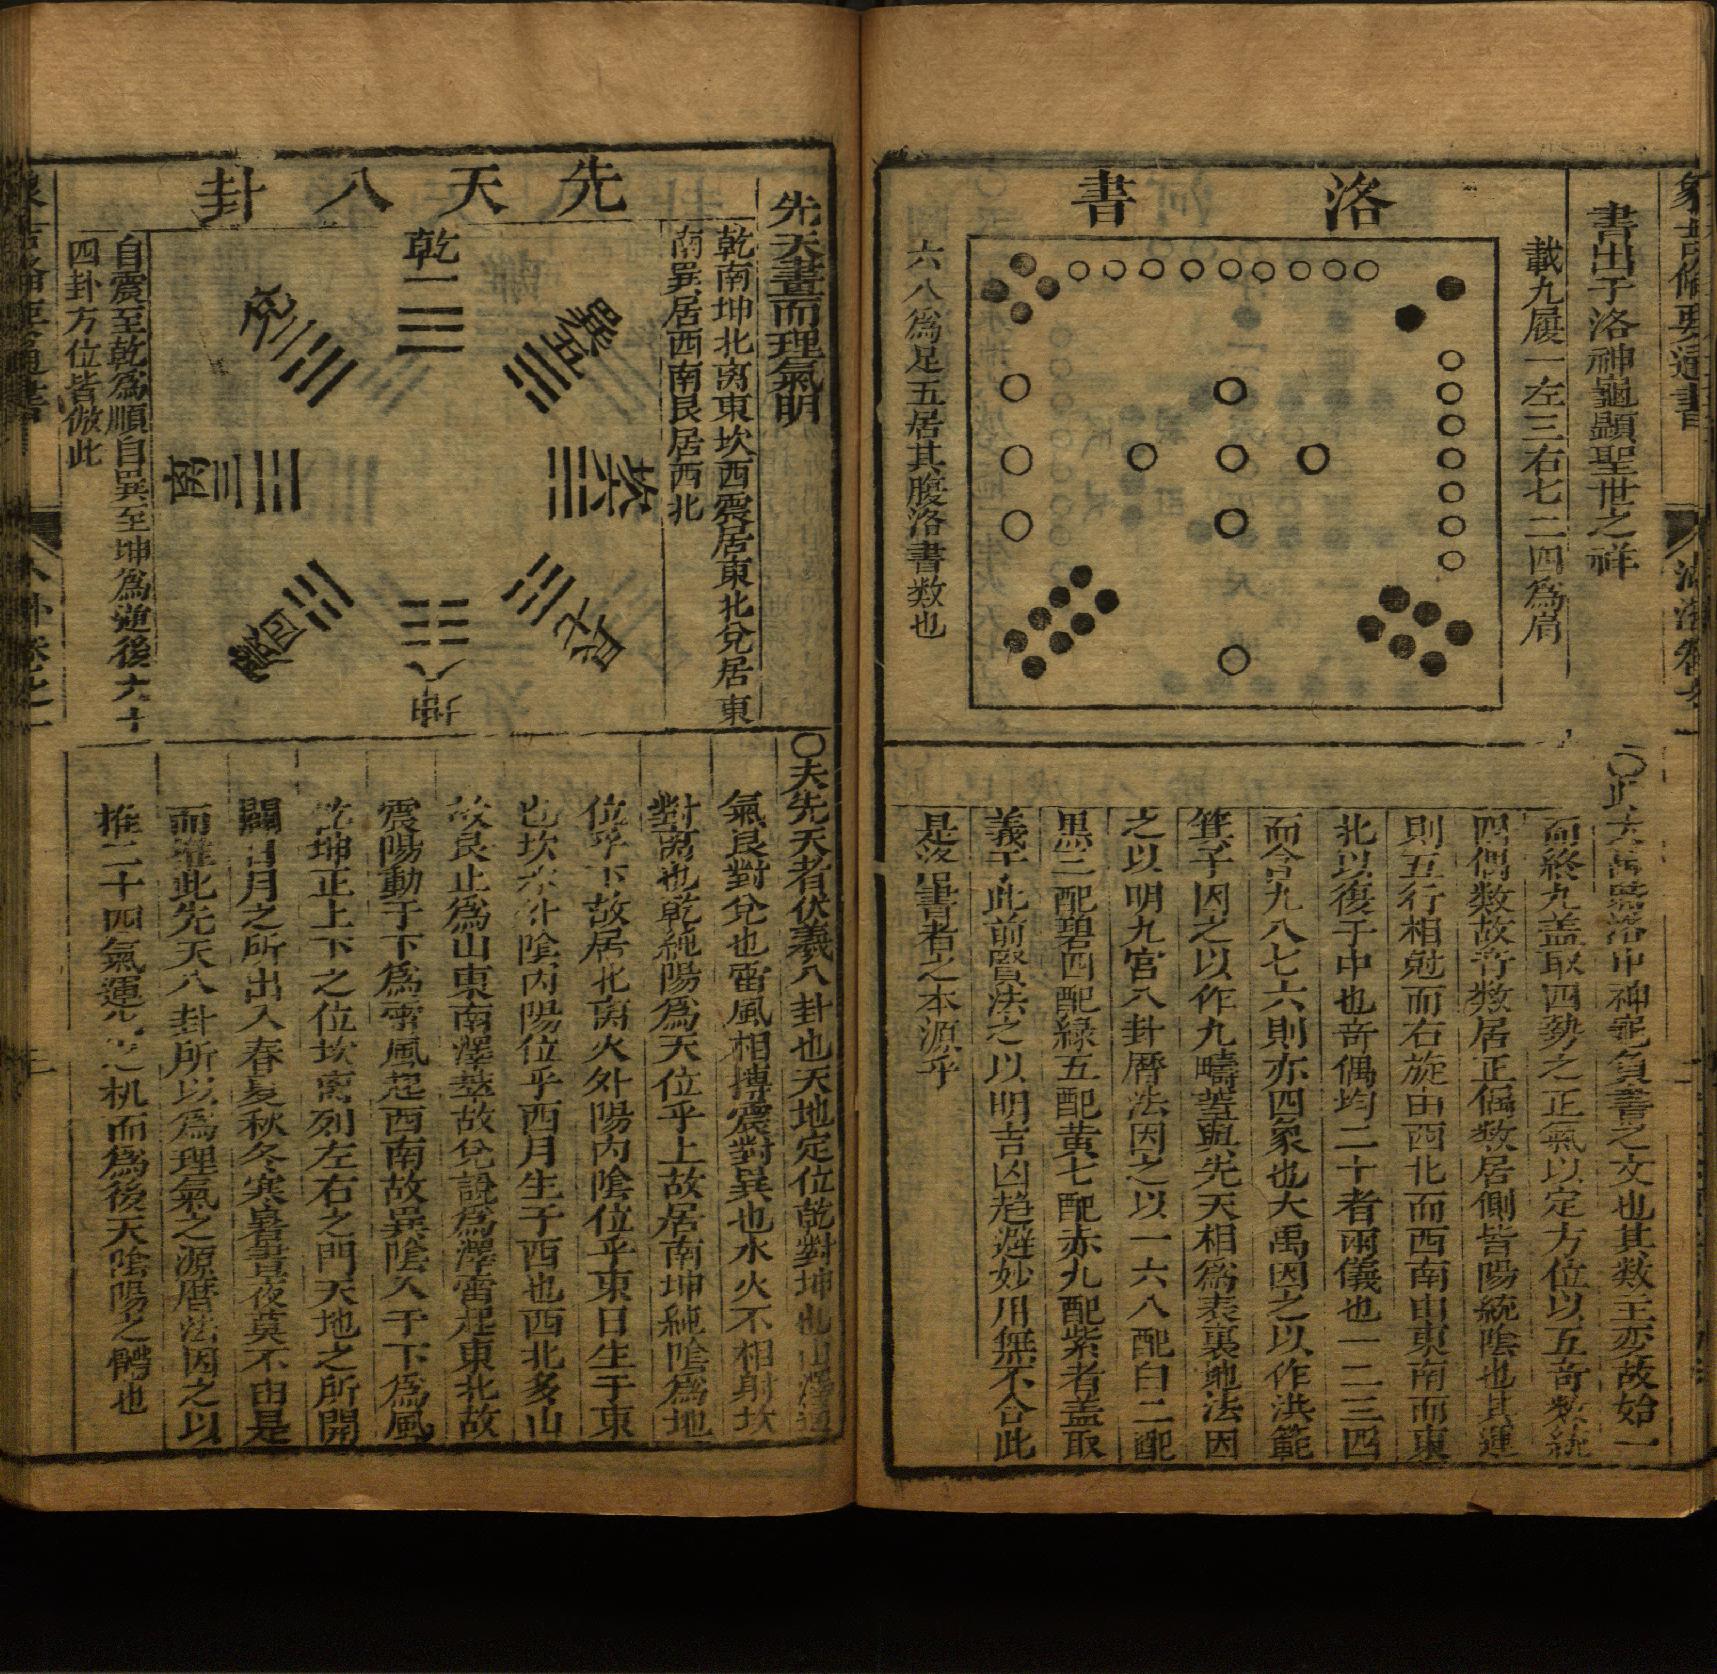 書出于洛神龜顯聖世之祥
洛書
載九履一左三右七二四為肩
六八為足五居其腹洛書数也
神龜負書之文也其数主変故始一
而終九蓋取四勢之正氣以定方位以五奇数統
四偶数故奇数居正偶数居側皆陽統陰也其運
則五行相尅而右旋由西北而西南由東南而東
北以復于中也奇偶均二十者兩儀也一二三四
而含九八七六則亦四象也大禹因之以作洪範
箕子因之以作九疇蓋與先天相為表裏地法因
之以明九宮八卦曆法因之以一六八配白二配
黒三配碧四配緑五配黄七配赤九配紫者蓋取
義于此前賢法之以明吉凶趋避妙用無不合此
是洛書者之本源乎
先天畫而理氣明
乾南坤北离東坎西震居東北兌居東
南巽居西南艮居西北
先天八卦
乾一
兌二
离三
震四
巽五
坎六
艮七
坤八
自震至乾為順自巽至坤為逆後六十
四卦方位皆倣此
〇夫先天者伏羲八卦也天地定位乾對坤也山澤通
氣艮對兌也雷風相搏震對巽也水火不相射坎
對离也乾純陽為天位乎上故居南坤純陰為地
位乎下故居北离火外陽內陰位乎東日生于東
也坎水外陰內陽位乎西月生于西也西北多山
故艮止為山東南澤萃故兌說為澤雷起東北故
震陽動于下為雷風起西南故巽陰入于下為風
乾坤正上下之位坎离列左右之門天地之所開
闢日月之所出入春夏秋冬寒暑晝夜莫不由是
而推此先天八卦所以為理氣之源曆法因之以
推二十四氣運之机而為後天陰陽之體也
八卦卷之一
三